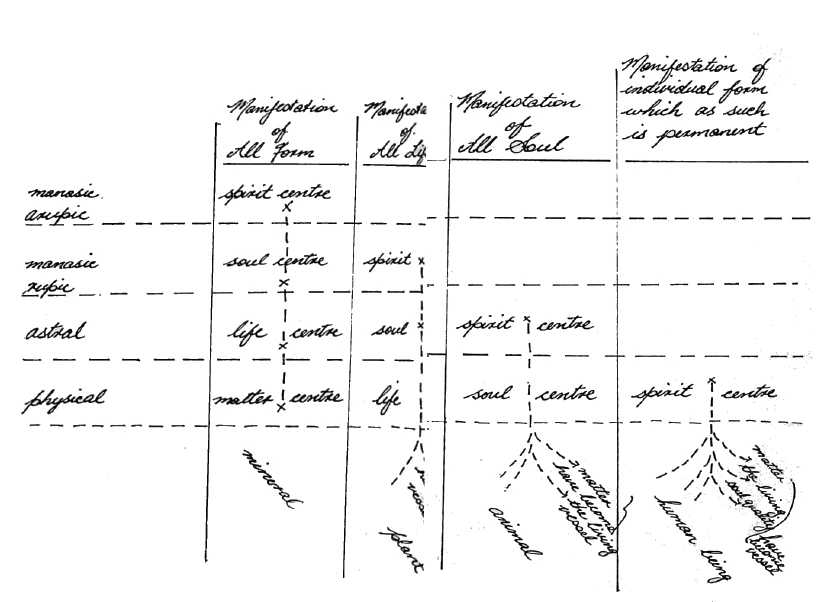 Manifestation of All Form
Manifesta of All Lif
Manifestation of All Soul
Manifestation of
individual form
which as such
is permanent
manasic
arupic
spirit centre
manasic
rupic
soul centre
spirit
astral
life centre
soul
spirit centre
physical
matter centre
life
soul centre
spirit centre
mineral
plant
animal
matter
have become
the living
vessel
human being
matter
the living
soul quality
have
become
vessel